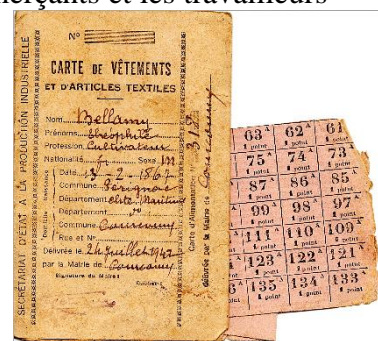 erçants et les travailleurs
SECRÉTARIAT D'ÉTAT A LA PRODUCTION INDUSTRIELLE
N°
CARTE DE VÊTEMENTS
ET D'ARTICLES TEXTILES
Nom Bellamy
Prénoms Théophile
Profession Cultivateur
Nationalité f. Sexe M
Date 3-2-1867
Commune Pérignac
Département Chte Maritime
Département
Commune Courcoury
Rue et N°
Délivrée le 24 Juillet 1942
par la Mairie de Courcoury
Signature du Maire
Carte d'Alimentation N° 315
délivrée par la Mairie de Courcoury
63A 62A 61
1 point 1 point 1 point
75A 74A 73
1 point 1 point 1 point
87A 86A 85
1 point 1 point 1 point
99A 98A 97
1 point 1 point 1 point
111A 110A 109
1 point 1 point 1 point
123A 122A 121
1 point 1 point 1 point
6 135A 134A 133A
1 point 1 point 1 point